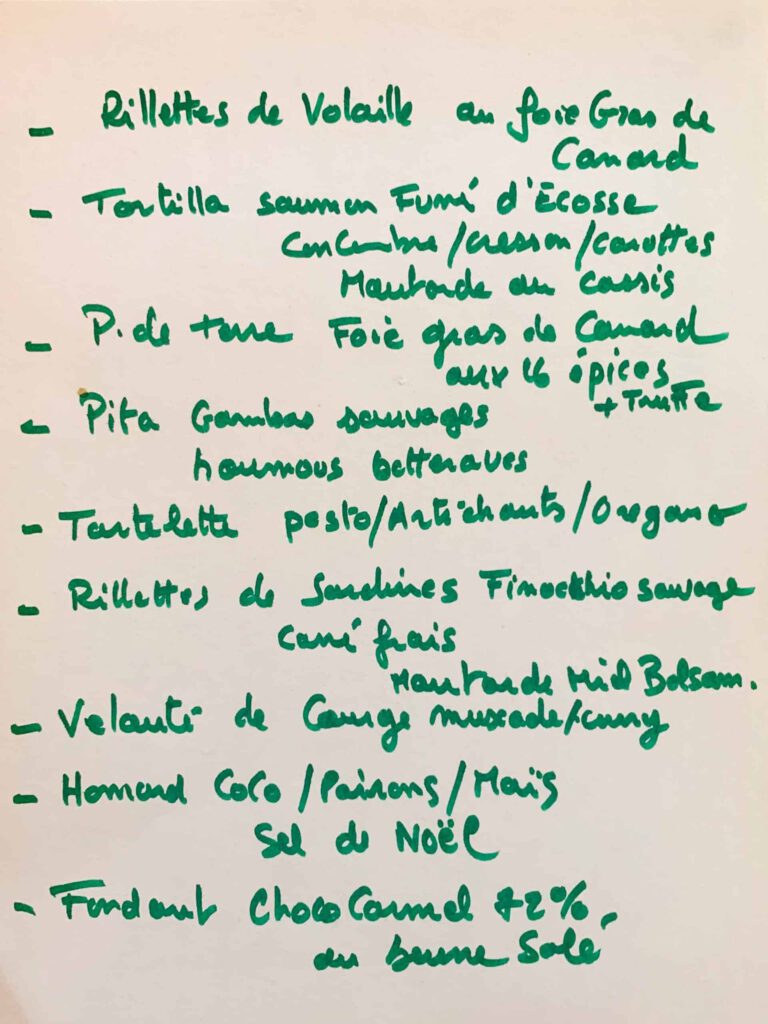 - Rillettes de Volaille au foie Gras de
Canard
- Tortilla saumon Fumé d'Ecosse
Concombre/cresson/carottes
Moutarde au cassis
- P. de terre Foie gras de Canard
aux 16 épices
+ Truffe
- Pita Gambas sauvages
houmous betteraves
- Tartelette pesto/Artichauts/Oregano
- Rillettes de Sardines Finocchio sauvage
Carré frais
Moutarde Miel Balsam.
- Velouté de Courge muscade/curry
- Homard Coco/Poivrons/Maïs
Sel de Noël
- Fondant Choco Carmel 72%
au beurre Salé